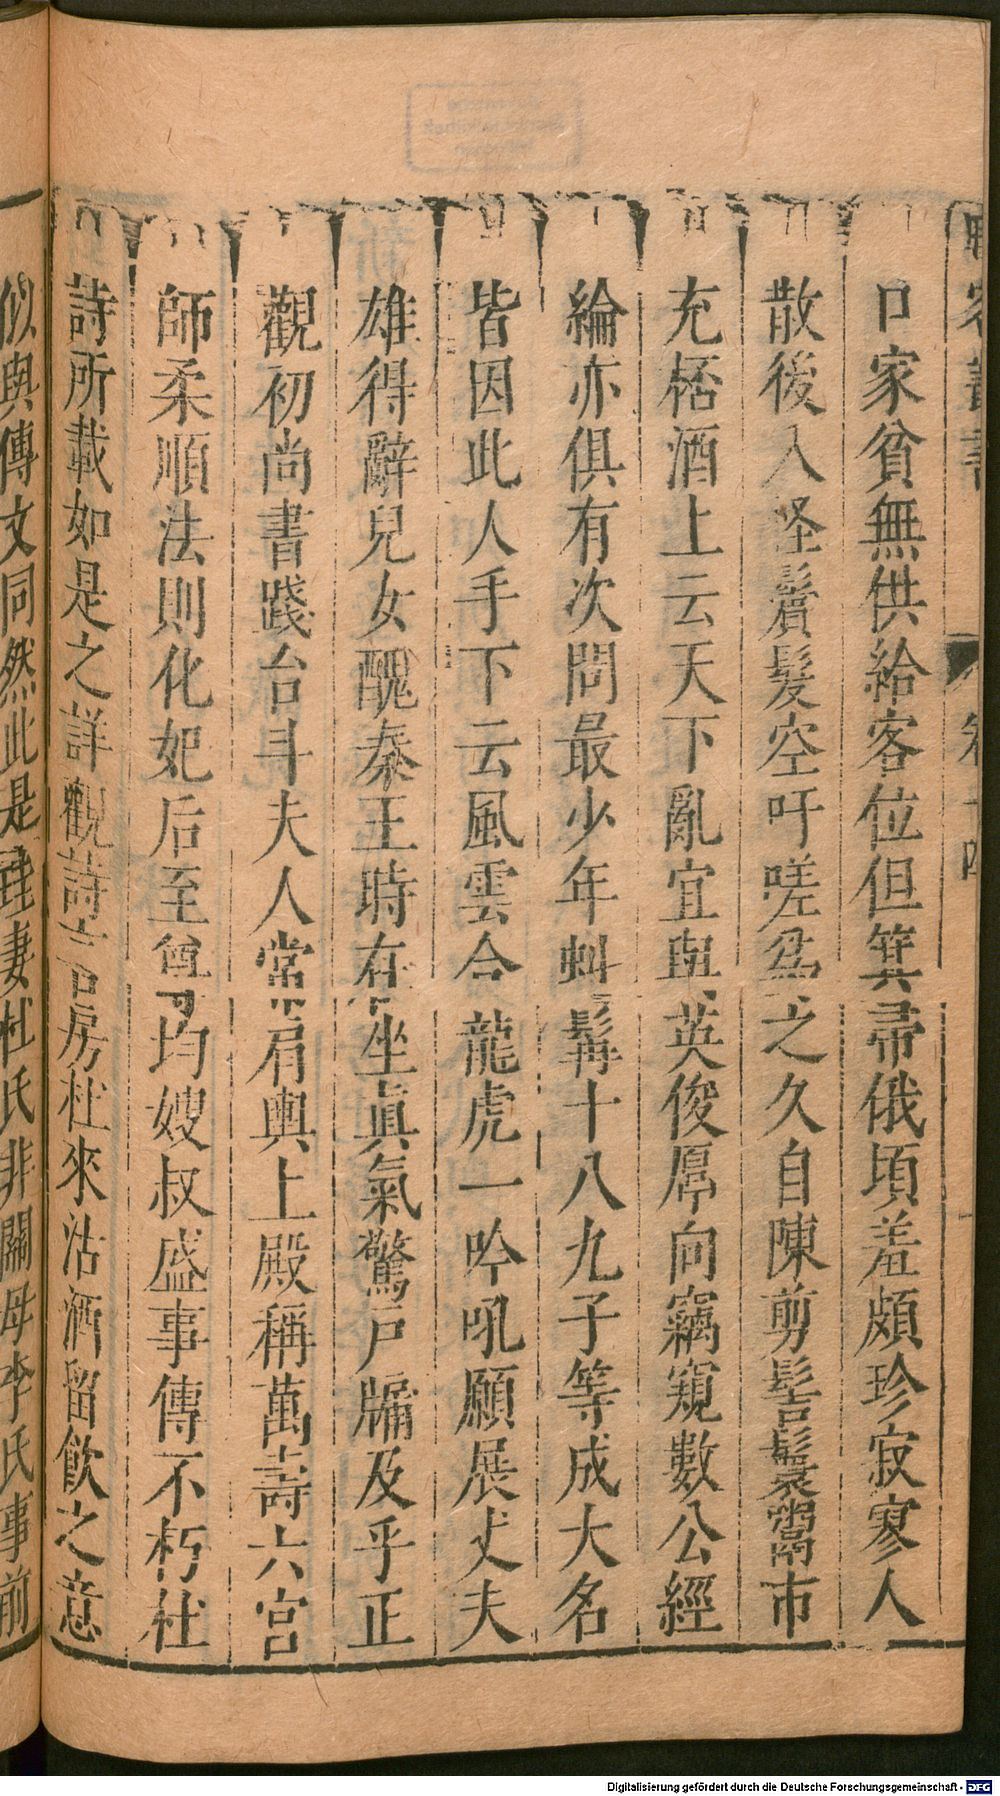 口家貧無供給客位但箕帚俄頃羞頗珍寂寥人
散後入怪鬢髮空吁嗟爲之久自陳剪髻鬟鬻市
充桮酒上云天下亂宜與英俊厚向竊窺數公經
綸亦俱有次問最少年虯髯十八九子等成大名
皆因此人手下云風雲合龍虎一吟吼願展丈夫
雄得辭兒女醜秦王時在坐眞氣驚戶牖及乎正
觀初尚書踐台斗夫人常肩輿上殿稱萬壽六宮
師柔順法則化妃后至尊均嫂叔盛事傳不朽杜
詩所載如是之詳觀詩言房杜來沽酒留飲之意
似與傳文同然此是珪妻杜氏非關母李氏事前
Digitalisierung gefördert durch die Deutsche Forschungsgemeinschaft - DFG